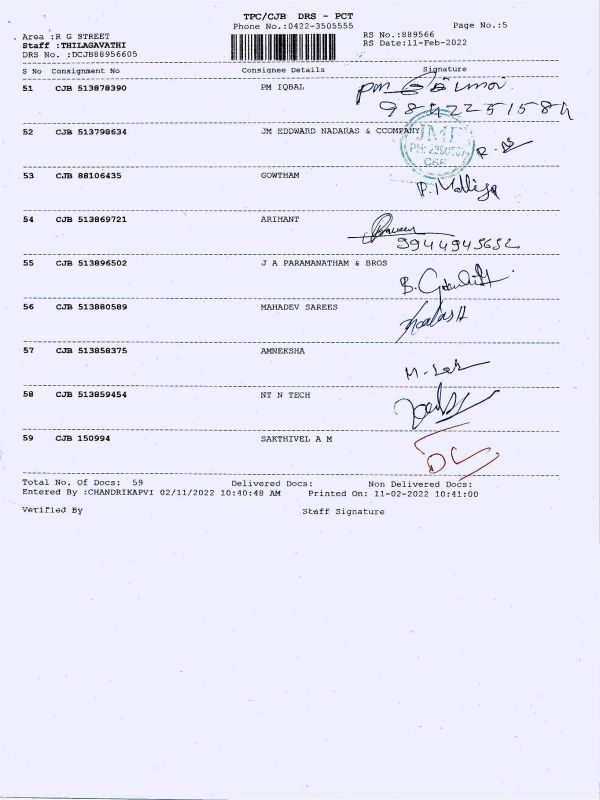 TPC/CJB DRS - PCT
Phone No.:0422-3505555
Page No.:5
Area :R G STREET
RS No.:889566
Staff :THILAGAVATHI
RS Date:11-Feb-2022
DRS No. :DCJB88956605
S No Consignment No Consignee Details Signature
51 CJB 513878390 PM IQBAL
9842251584
52 CJB 513798634 JM EDDWARD NADARAS & CCOMPANY
JMF
CBE
53 CJB 88106435 GOWTHAM
54 CJB 513869721 ARIHANT
9944945652
55 CJB 513896502 J A PARAMANATHAM & BROS
56 CJB 513880589 MAHADEV SAREES
57 CJB 513858375 AMNEKSHA
58 CJB 513859454 NT N TECH
59 CJB 150994 SAKTHIVEL A M
DC
Total No. Of Docs: 59 Delivered Docs: Non Delivered Docs:
Entered By :CHANDRIKAPVI 02/11/2022 10:40:48 AM Printed On: 11-02-2022 10:41:00
Verified By Staff Signature